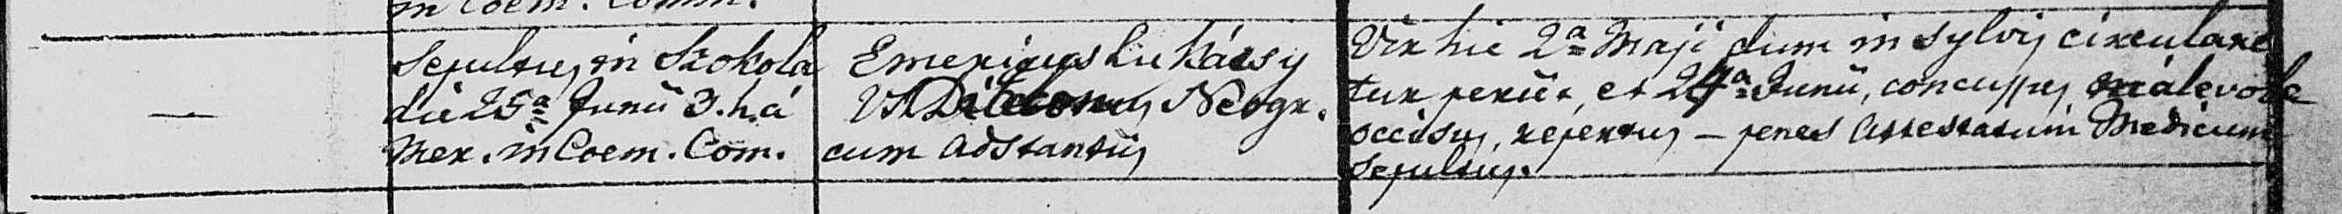 in Coem. Comm.
—
Sepultus in Szokola
die 25ª Junii 3. h. á
Mer. in Coem. Com.
Emericus Lukácsy
V. Diaconus Neogr.
cum adstantiis
Vir hic 2ª Maji dum in sylvis circulare
tur periit, et 24ª Junii, concussus málevole
occisus, repertus — penes Attestatum Medicum
sepultus.